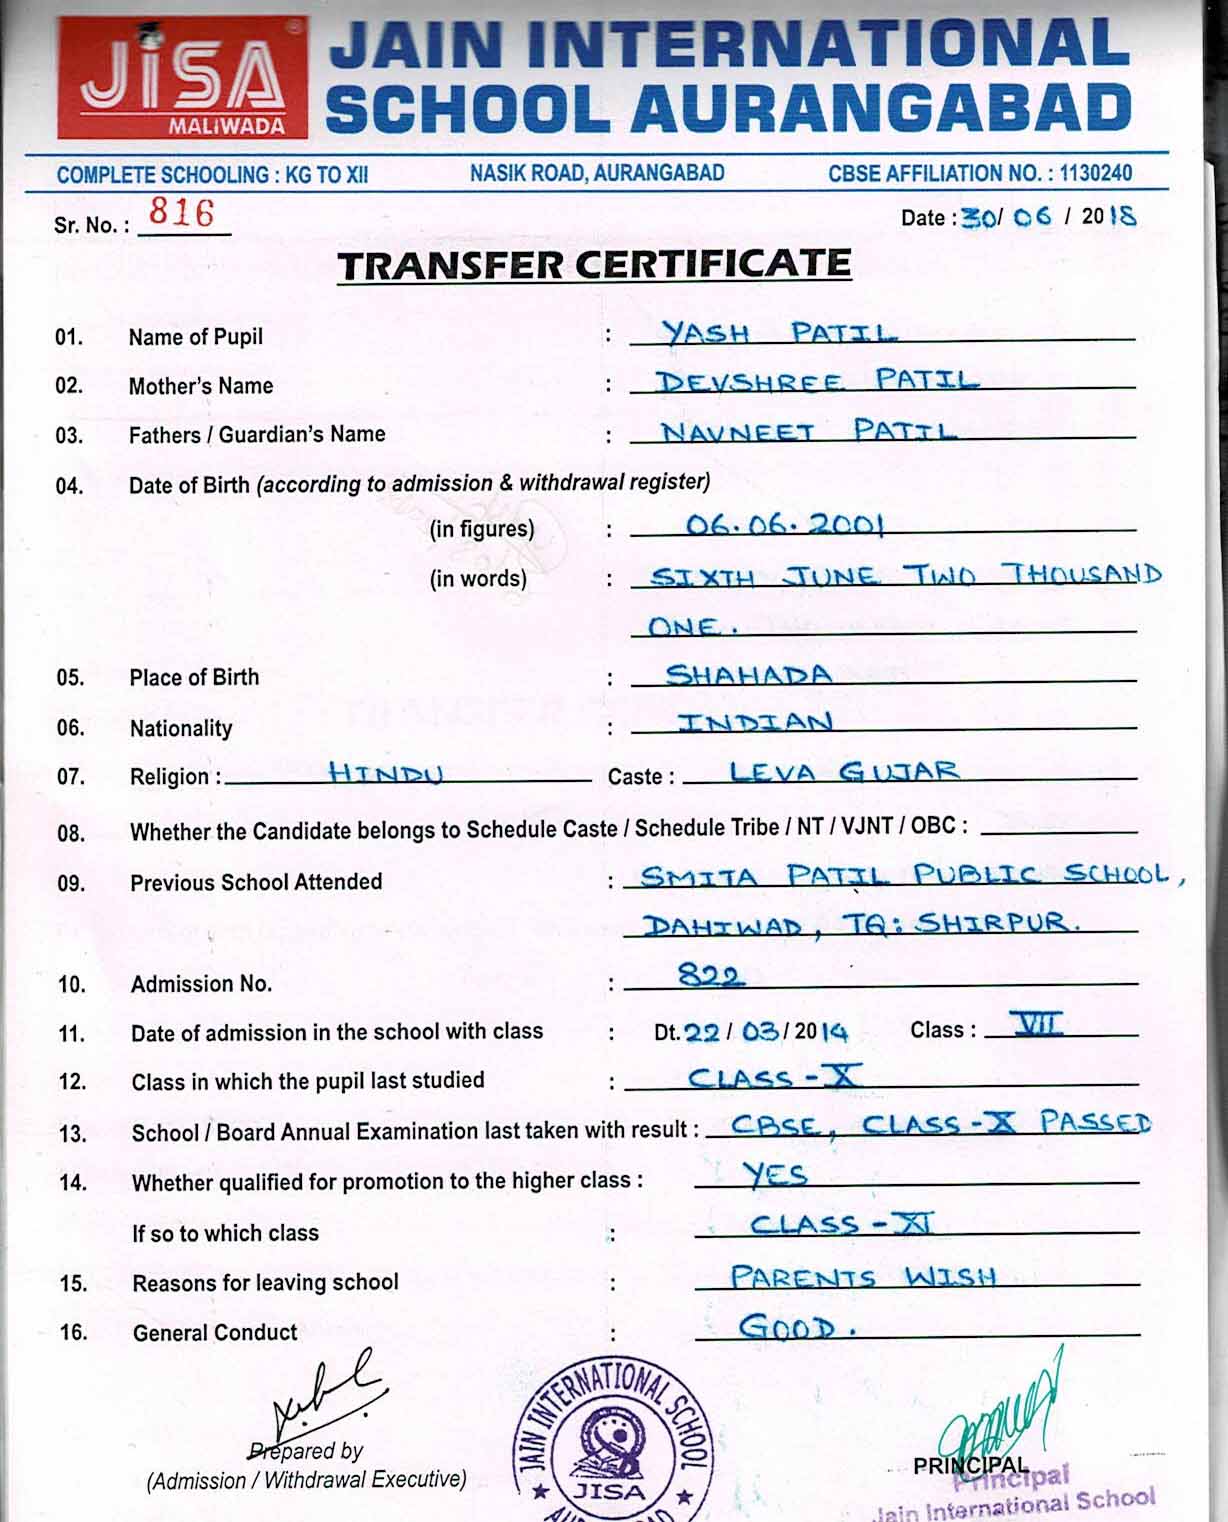 JiSA ®
MALiWADA
JAIN INTERNATIONAL
SCHOOL AURANGABAD
COMPLETE SCHOOLING : KG TO XII NASIK ROAD, AURANGABAD CBSE AFFILIATION NO. : 1130240
Sr. No. : 816 Date : 30/ 06 / 2018
TRANSFER CERTIFICATE
01. Name of Pupil : YASH PATIL
02. Mother's Name : DEVSHREE PATIL
03. Fathers / Guardian's Name : NAVNEET PATIL
04. Date of Birth (according to admission & withdrawal register)
(in figures) : 06.06.2001
(in words) : SIXTH JUNE TWO THOUSAND
ONE.
05. Place of Birth : SHAHADA
06. Nationality : INDIAN
07. Religion : HINDU Caste : LEVA GUJAR
08. Whether the Candidate belongs to Schedule Caste / Schedule Tribe / NT / VJNT / OBC :
09. Previous School Attended : SMITA PATIL PUBLIC SCHOOL,
DAHIWAD, TQ: SHIRPUR.
10. Admission No. : 822
11. Date of admission in the school with class : Dt. 22 / 03 / 2014 Class : VII
12. Class in which the pupil last studied : CLASS - X
13. School / Board Annual Examination last taken with result : CBSE, CLASS - X PASSED
14. Whether qualified for promotion to the higher class : YES
If so to which class : CLASS - XI
15. Reasons for leaving school : PARENTS WISH
16. General Conduct : GOOD.
Prepared by
(Admission / Withdrawal Executive)
JAIN INTERNATIONAL SCHOOL
JISA
AURANGABAD
PRINCIPAL
Principal
Jain International School